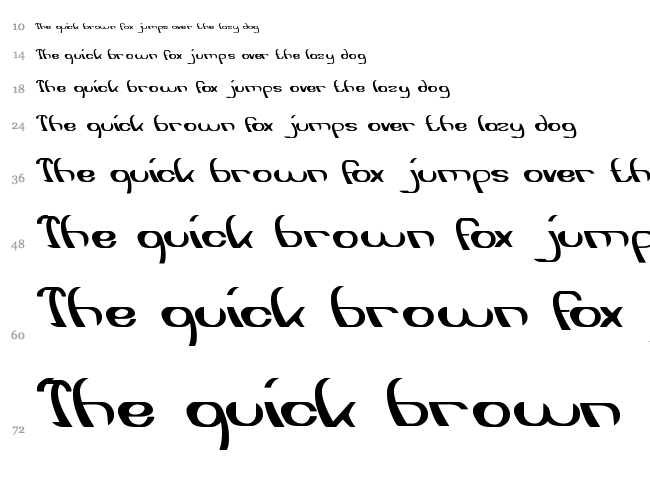 10 The quick brown fox jumps over the lazy dog
14 The quick brown fox jumps over the lazy dog
18 The quick brown fox jumps over the lazy dog
24 The quick brown fox jumps over the lazy dog
36 The quick brown fox jumps over th
48 The quick brown fox jump
60 The quick brown fox
72 The quick brown